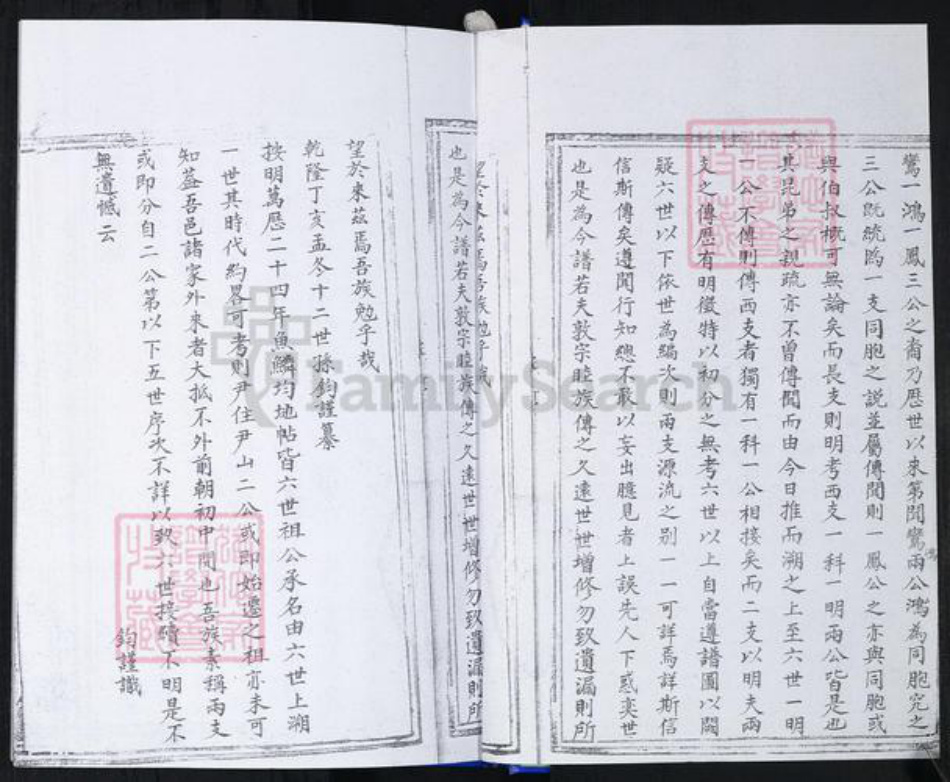 鸞一鴻一鳳三公之裔乃歷世以來第聞鸞兩公鴻為同胞究之
三公既統為一支同胞之説並屬傳聞則一鳳公之亦與同胞或
與伯叔概可無論矣而長支則明考西支一科一明兩公皆是也
其昆弟之親疏亦不曾傳聞而由今日推而溯之上至六世一明
一公不傳則傳西支者獨有一科一公相接矣而二支以明夫兩
支之傳歷有明徵特以初分之無考六世以上自當遵譜圖以闕
疑六世以下依世為編次則兩支源流之別一一可詳焉詳斯信
信斯傳矣遵聞行知總不敢以妄出臆見者上誤先人下惑奕世
也是為今譜若夫敦宗睦族傳之久遠世世增修勿致遺漏則所
望於來茲焉吾族勉乎哉
也是為今譜若夫敦宗睦族傳之久遠世世增修勿致遺漏則所
望於來茲焉吾族勉乎哉
乾隆丁亥孟冬十二世孫鈞謹纂
按明萬歷二十四年魚鱗均地帖皆六世祖公承名由六世上溯
一世其時代約畧可考則尹住尹山二公或即始遷之祖亦未可
知葢吾邑諸家外來者大抵不外前朝初中間也吾族素稱兩支
或即分自二公第以下五世序次不詳以致六世接續不明是不
無遺憾云
鈞謹識
FamilySearch